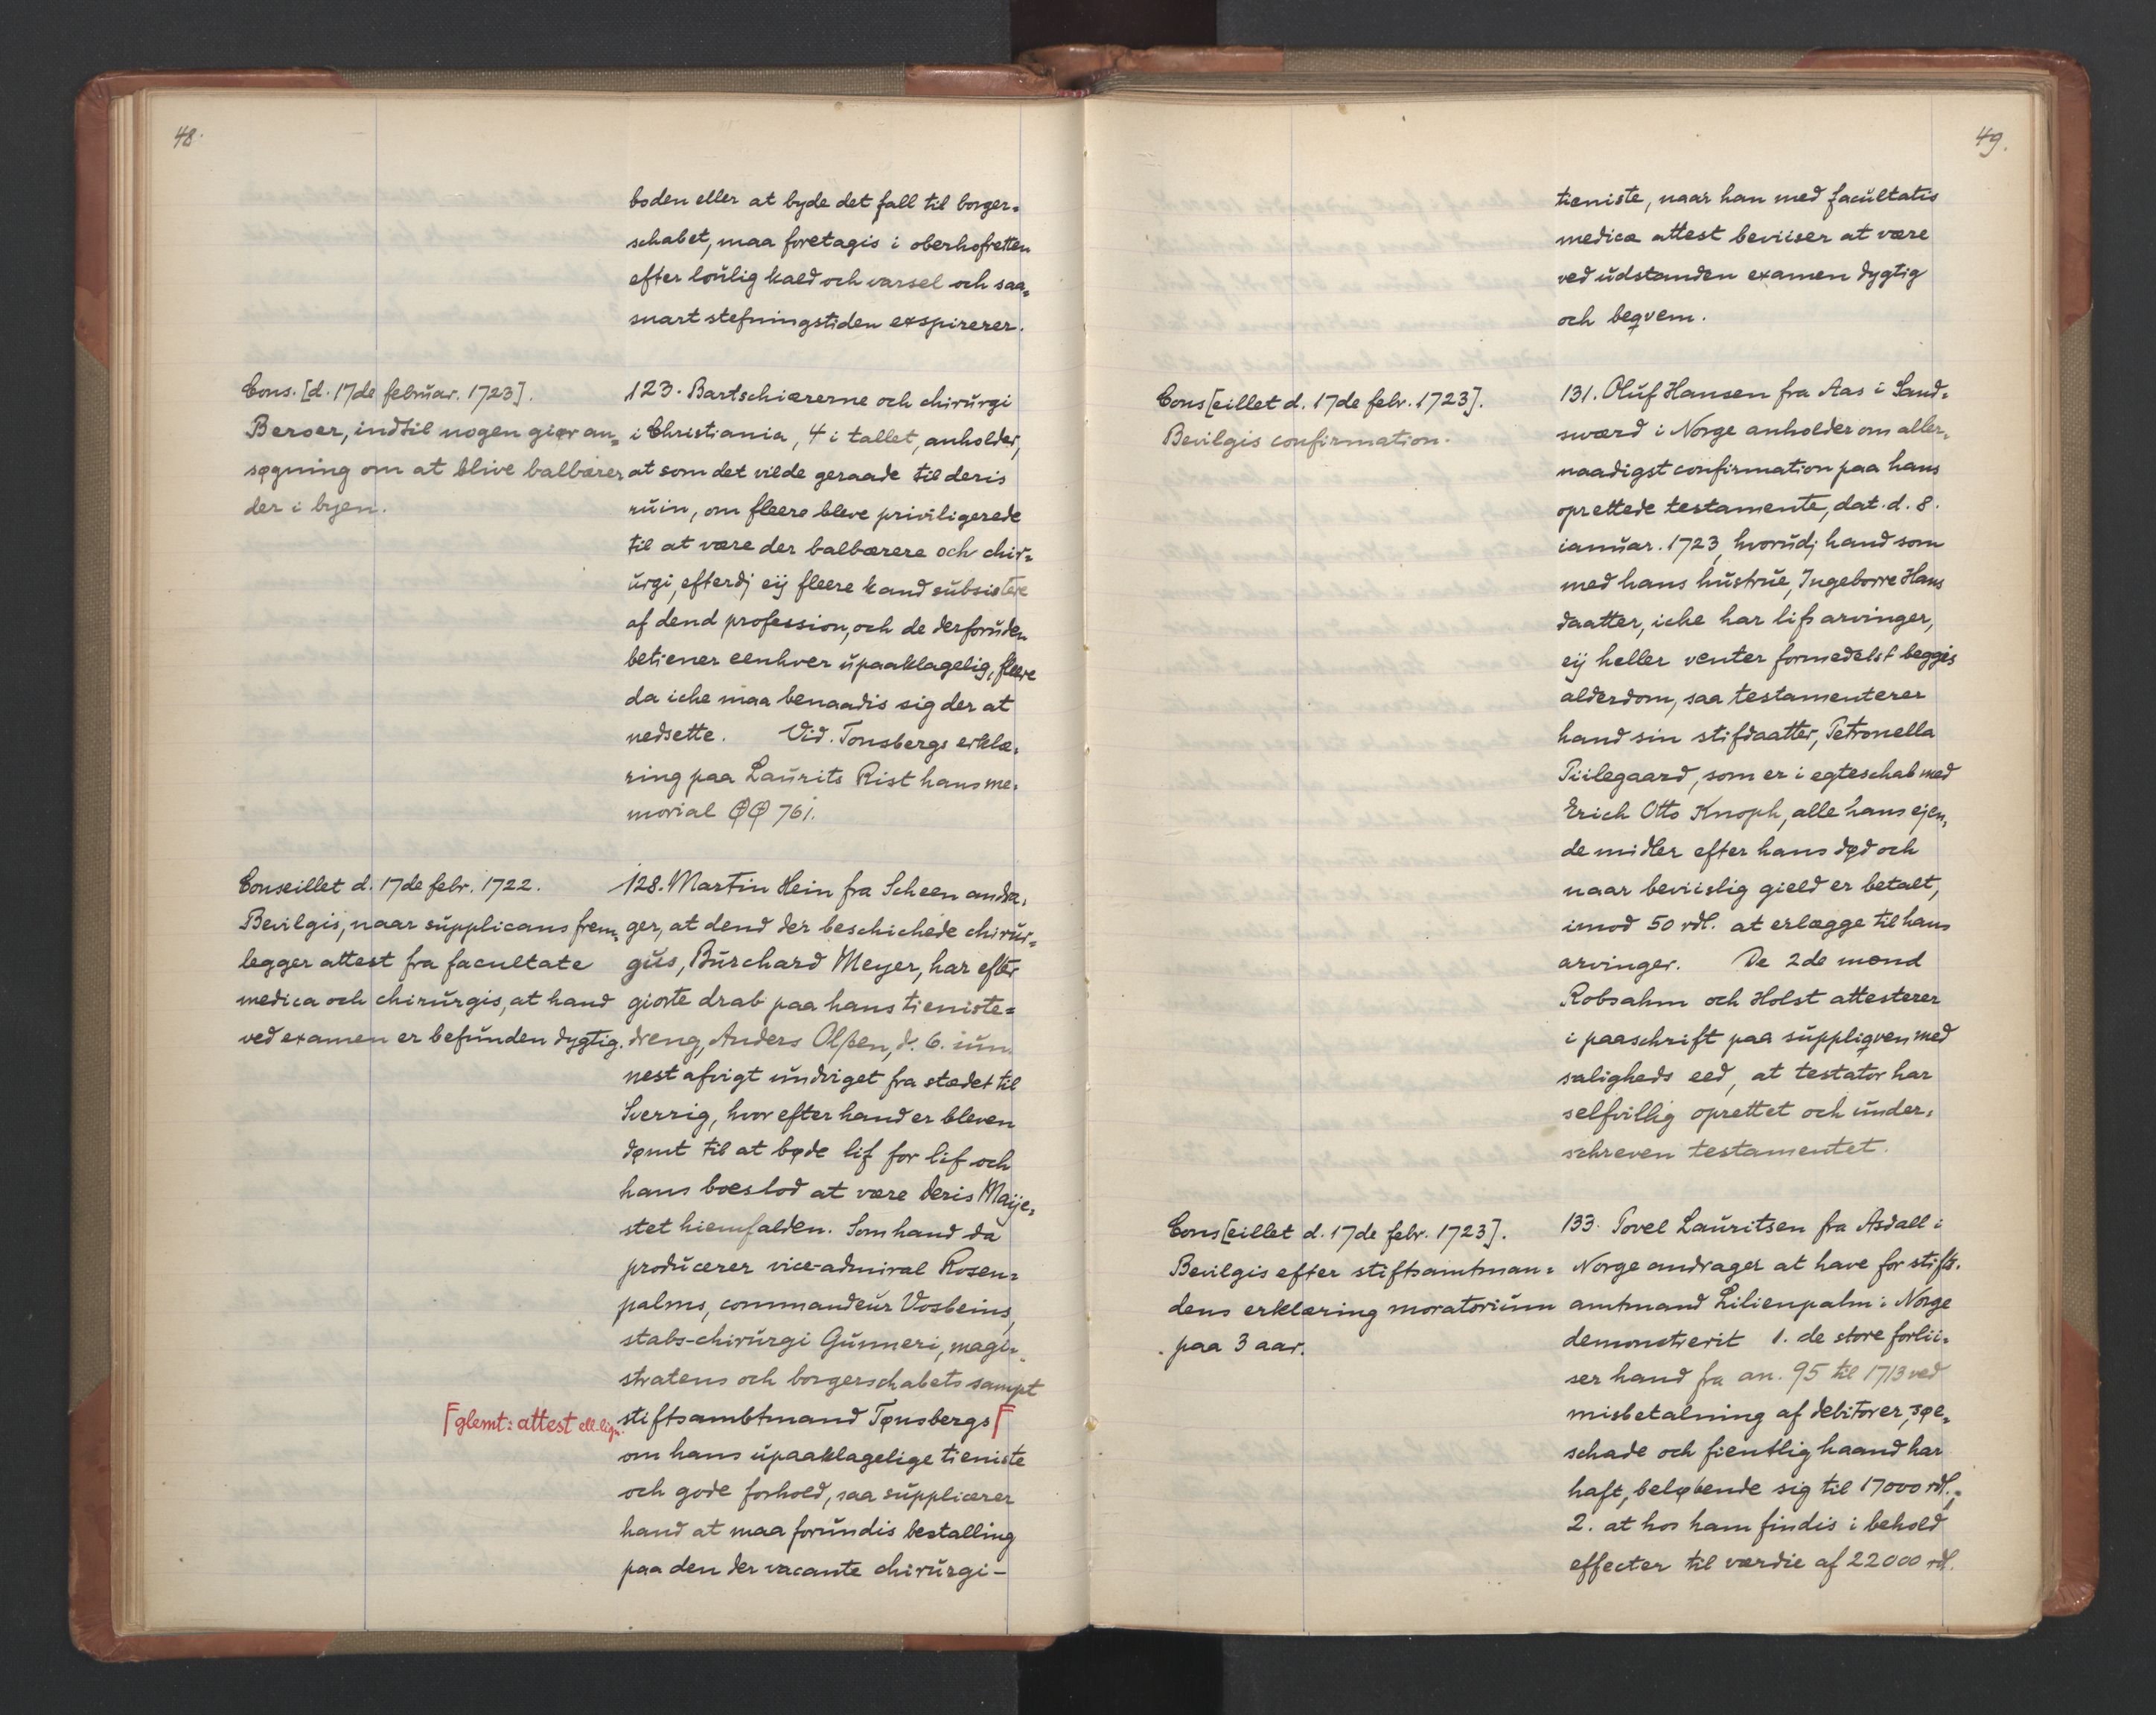 48.
boden eller at byde det fall til borger=
schabet, maa foretagis i oberhofretten
efter loulig kald och varsel och saa=
snart stefningstiden exspirerer.
Cons. [d. 17de februar. 1723].
Beroer, indtil nogen giør an=
søgning om at blive balbærer
der i byen.
123. Bartschiærerne och chirurgi
i Christiania, 4 i tallet, anholder,
at som det vilde geraade til deris
ruin, om fleere bleve priviligerede
til at være der balbærere och chir=
urgi, efterdj eij fleere kand subsistere
af dend profession, och de derforuden
betiener eenhver upaaklagelig, fleere
da iche maa benaadis sig der at
nedsette. Vid. Tonsbergs erklæ=
ring paa Laurits Rist hans me=
morial QQ 761.
Conseillet d. 17de febr. 1722.
Bevilgis, naar supplicans frem=
legger attest fra facultate
medica och chirurgis, at hand
ved examen er befunden dygtig.
128. Martin Hein fra Scheen andra=
ger, at dend der beschichede chirur=
gus, Burchard Meyer, har efter
giorte drab paa hans tieniste=
dreng, Anders Olßen, d. 6. iun.
nest afvigt undviget fra stædet til
Sverrig, hvor efter hand er bleven
dømt til at bøde lif for lif och
hans boeslod at være deris Maije=
stet hiemfalden. Som hand da
producerer vice-admiral Rosen=
palms, commandeur Vosbeins,
stabs-chirurgi Gunneri, magi=
stratens och borgerschabets sampt
⌈glemt: attest ell. lign.
stiftsambtmand Tønsbergs⌈
om hans upaaklagelige tieniste
och gode forhold, saa supplicerer
hand at maa forundis bestalling
paa den der vacante chirurgi-
49.
tieniste, naar han med facultatis
medicæ attest beviiser at være
ved udstanden examen dygtig
och beqvem.
Cons[eillet d. 17de febr. 1723].
Bevilgis confirmation.
131. Oluf Hansen fra Aas i Sand=
sværd i Norge anholder om aller=
naadigst confirmation paa hans
oprettede testamente, dat. d. 8.
ianuar. 1723, hvorudj hand som
med hans hustrue, Ingeborre Hans
daatter, iche har lifs arvinger,
eij heller venter formedelst beggis
alderdom, saa testamenterer
hand sin stifdaatter, Petronella
Piilegaard, som er i egteschab med
Erich Otto Knoph, alle hans ejen=
de midler efter hans død och
naar beviislig gield er betalt,
imod 50 rdl. at erlægge til hans
arvinger. De 2de mænd
Robsahm och Holst attesterer
i paaschrift paa suppliqven med
saligheds eed, at testator har
selfvillig oprettet och under=
schreven testamentet.
Cons[eillet d. 17de febr. 1723].
Bevilgis efter stiftsamtman=
dens erklæring moratorium
paa 3 aar.
133. Povel Lauritsen fra Asdall i
Norge andrager at have for stifts.
amtmand Lilienpalm i Norge
demonstrerit 1. de store forlii=
ser hand fra an. 95 til 1713 ved
misbetalning af debitorer, søe=
schade och fientlig haand har
haft, beløbende sig til 17000 rdl.;
2. at hos ham findis i behold
effecter til værdie af 22000 rdl.